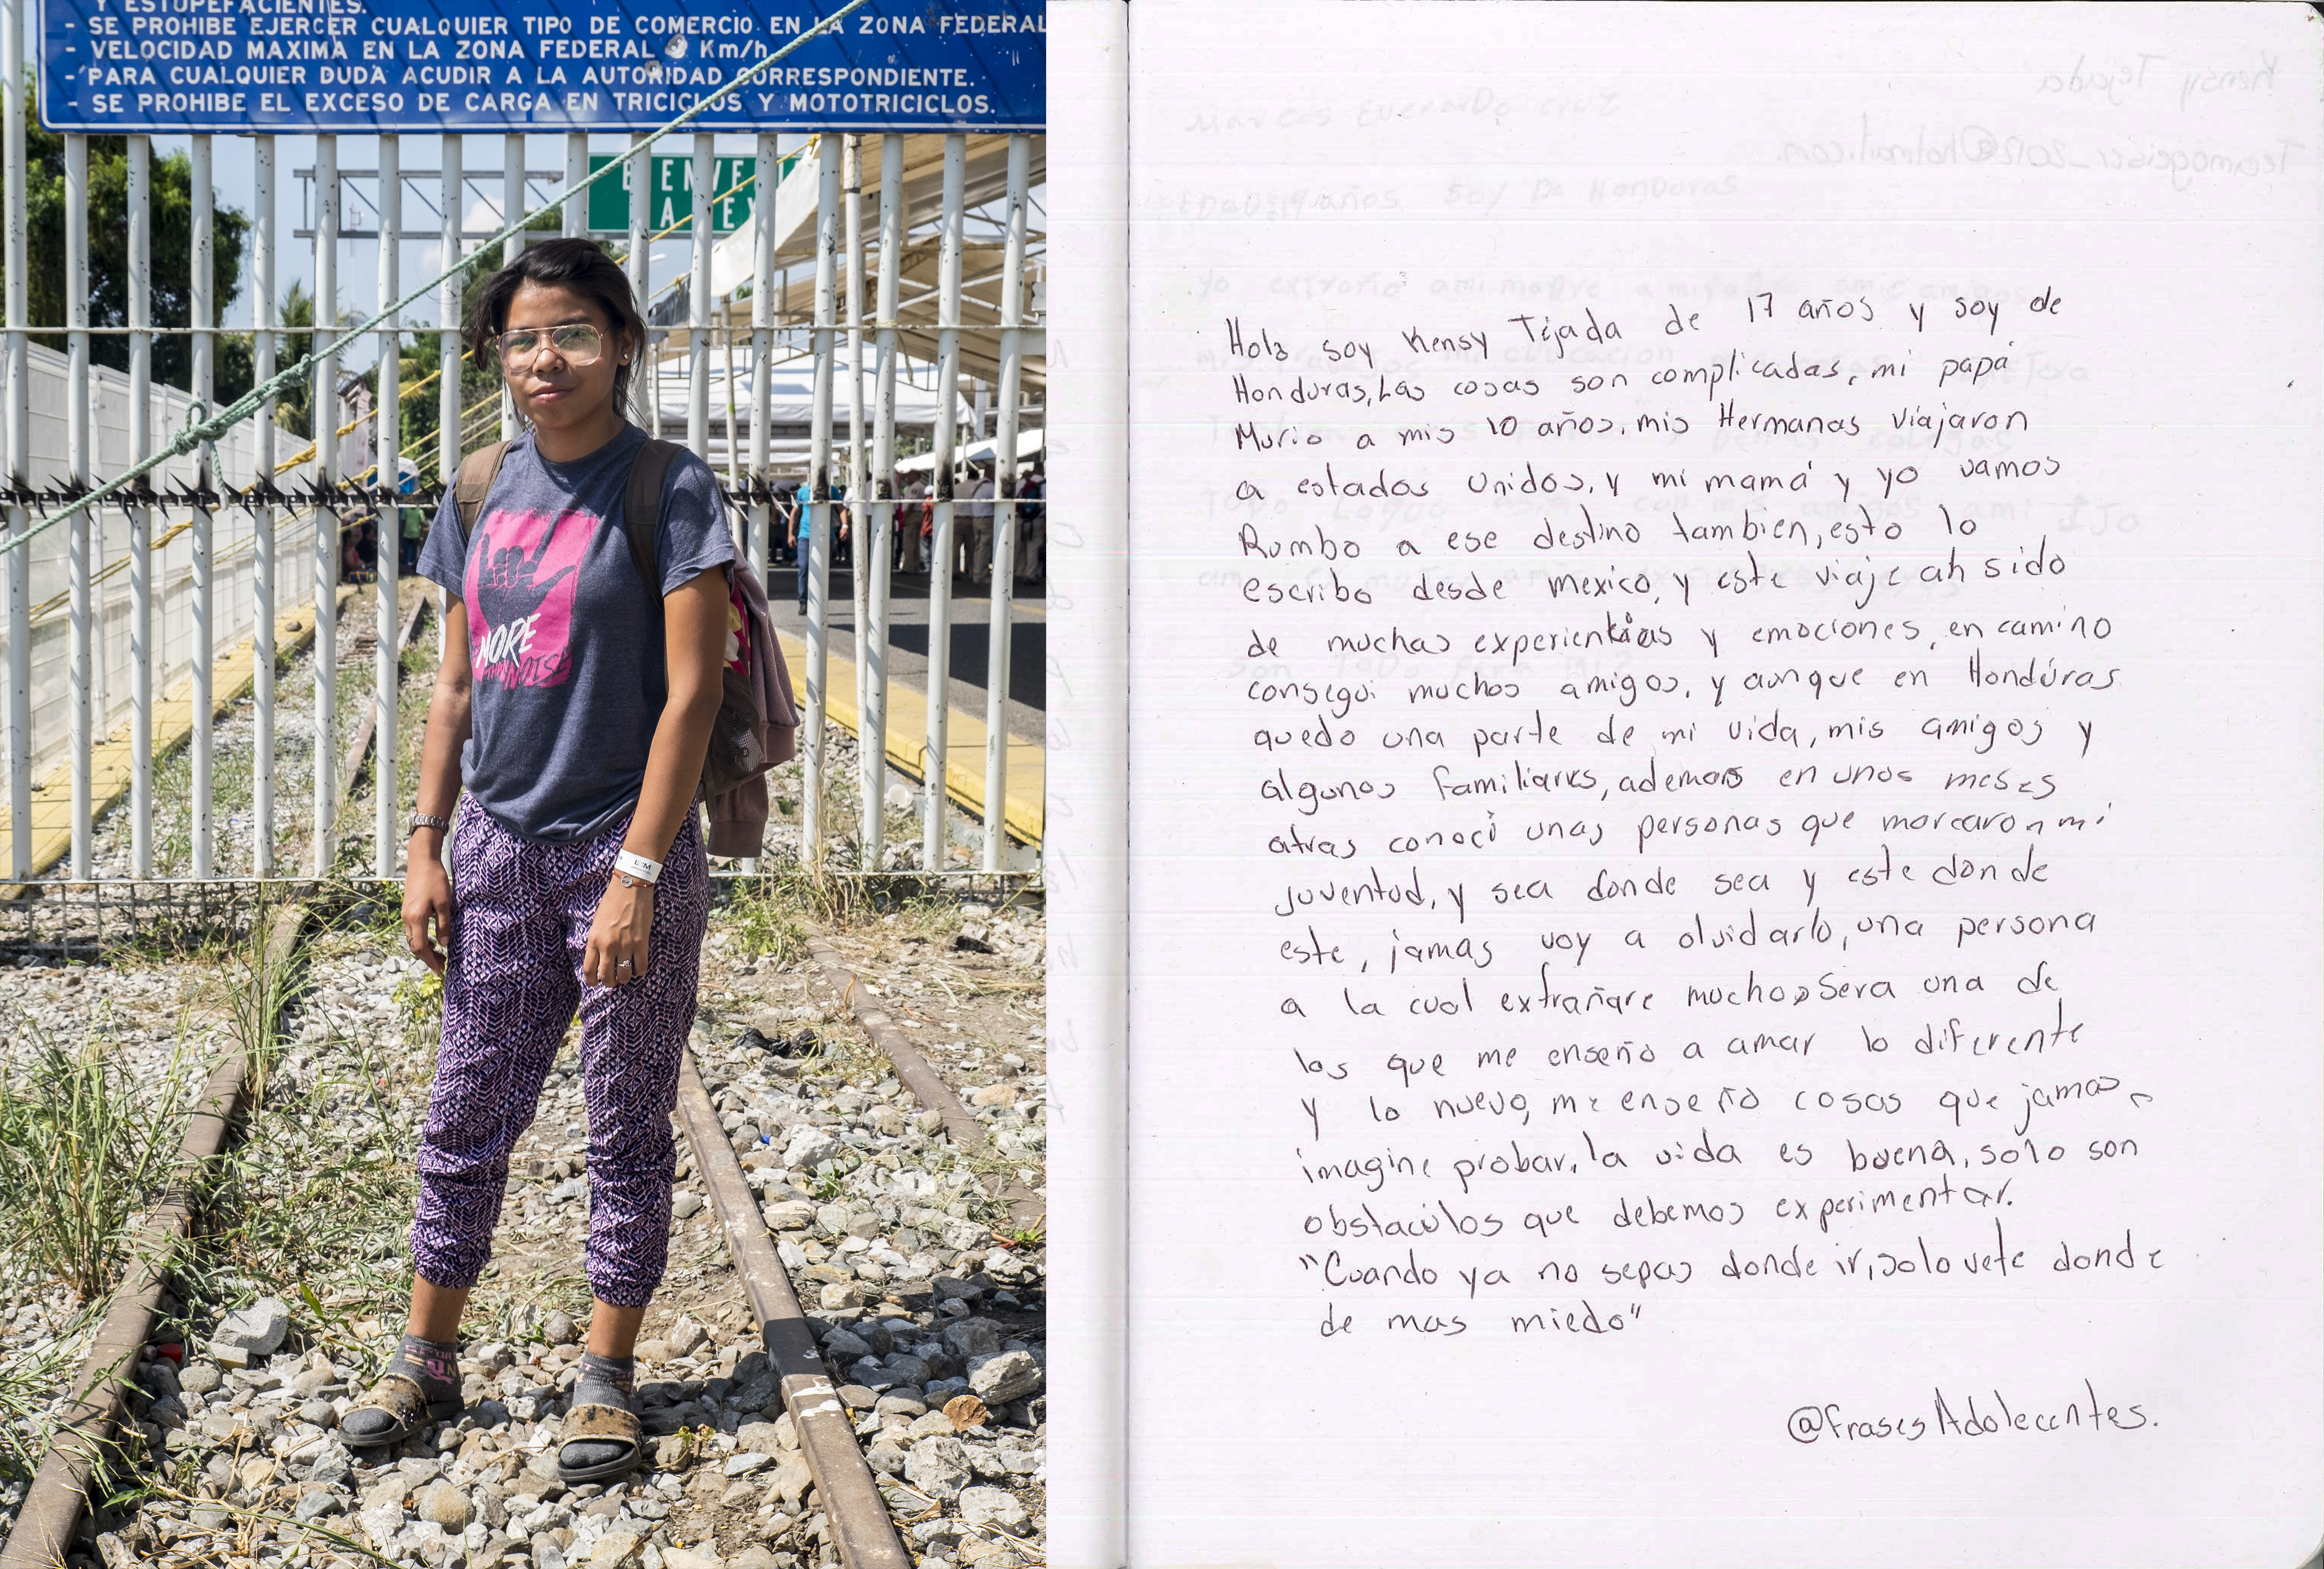 Y ESTUPEFACIENTES.
- SE PROHIBE EJERCER CUALQUIER TIPO DE COMERCIO EN LA ZONA FEDERAL
- VELOCIDAD MAXIMA EN LA ZONA FEDERAL Km/h
- PARA CUALQUIER DUDA ACUDIR A LA AUTORIDAD CORRESPONDIENTE.
- SE PROHIBE EL EXCESO DE CARGA EN TRICICLOS Y MOTOTRICICLOS.
BIENVE
A EX
MORE
THAN NOISE
Hola soy Kensy Tijada de 17 años y soy de
Honduras, Las cosas son complicadas, mi papá
Murio a mis 10 años, mis Hermanas viajaron
a estados unidos, y mi mamá y yo vamos
Rumbo a ese destino tambien, esto lo
escribo desde mexico, y este viaje ah sido
de muchas experiencias y emociones, en camino
consegui muchos amigos, y aunque en Hondúras
quedo una parte de mi vida, mis amigos y
algunos familiares, ademas en unos meses
atras conocí unas personas que marcaron mi
juventud, y sea donde sea y este donde
este, jamas voy a olvidarlo, una persona
a la cual extrañare mucho, Sera una de
las que me enseño a amar lo diferente
y lo nuevo, me enseño cosas que jamas
imagine probar, la vida es buena, solo son
obstaculos que debemos experimentar.
"Cuando ya no sepas donde ir, solo vete donde
de mas miedo"
@frasesAdolecentes.
Marcos Everardo Cruz
EDaD: 19 años. Soy De Honduras
Kensy Tejada